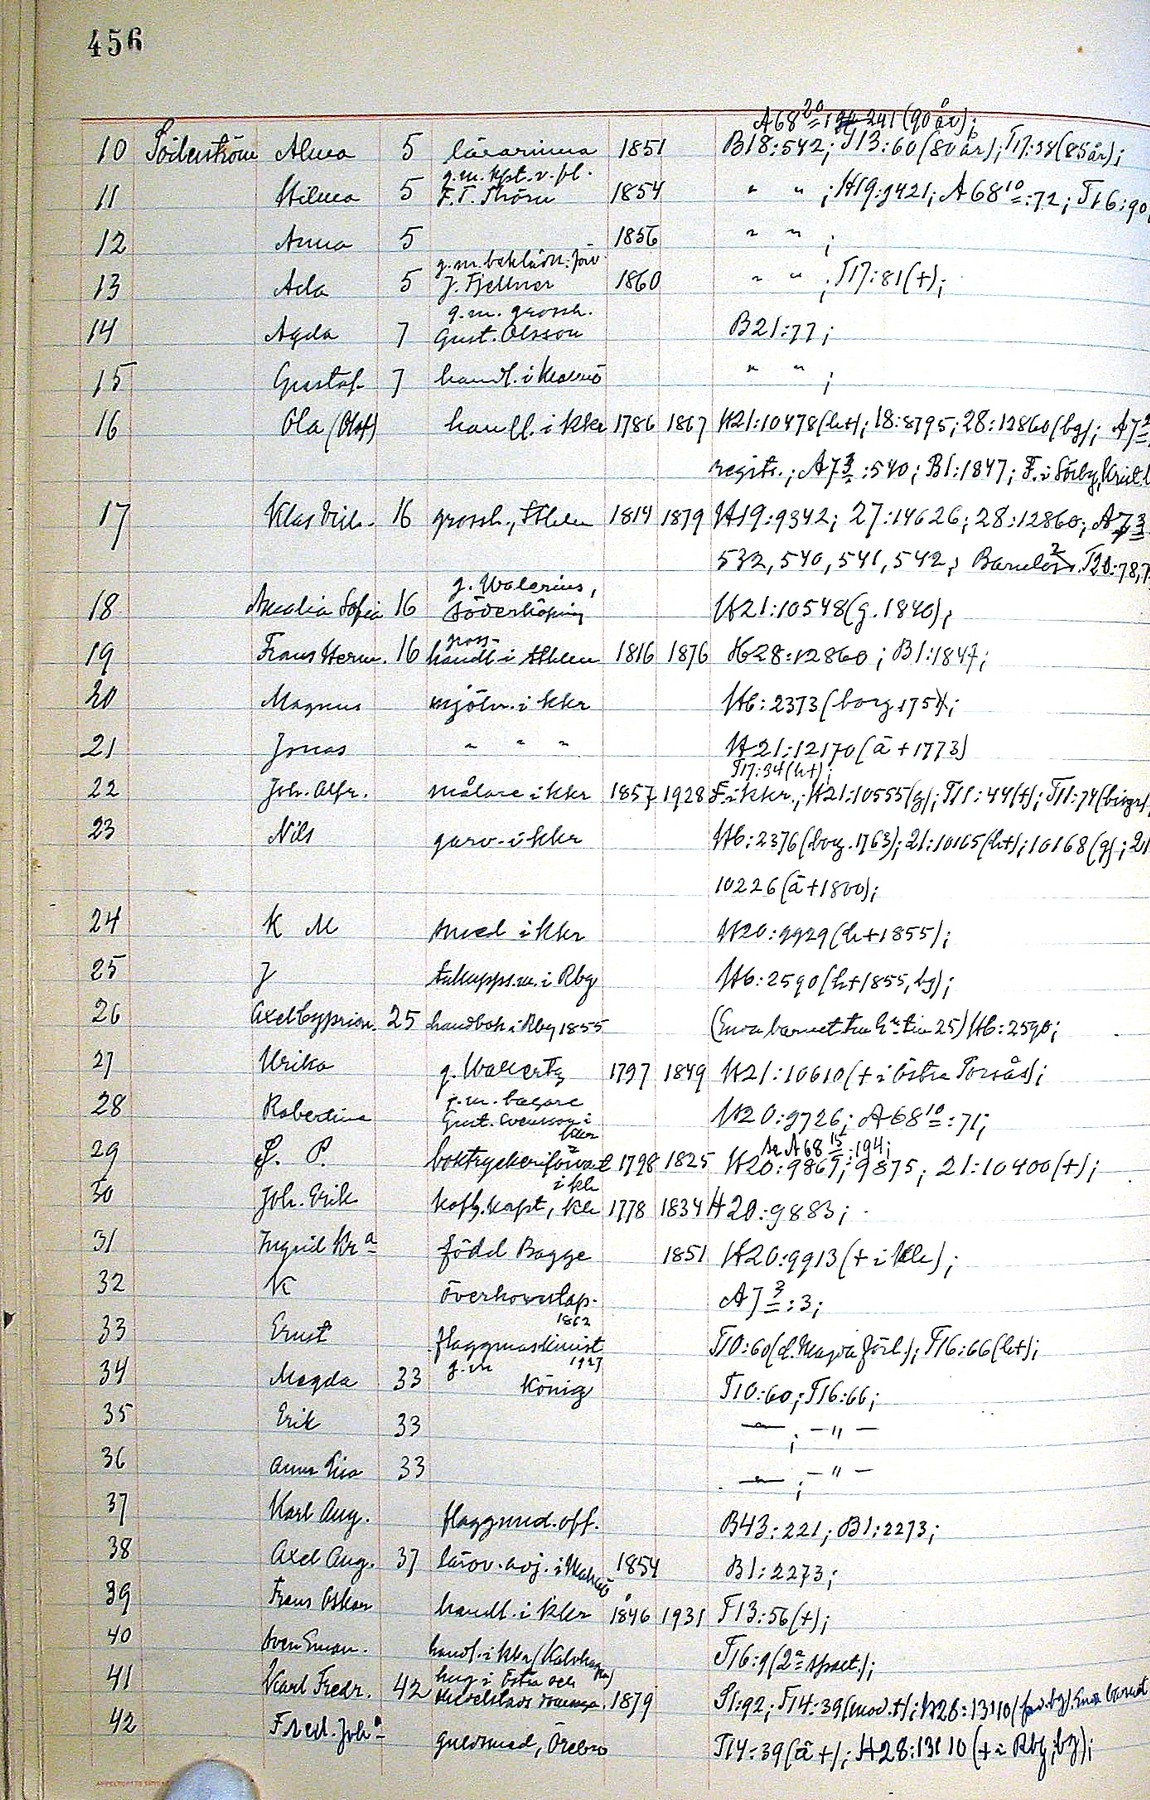 456
A68 20:194 241 (90 år);
10 Söderström Alma 5 lärarinna 1851 B18:542; T13:60 (80 år); T17:38 (85 år);
g.m. kpt. v. fl.
11 Hilma 5 F.T. Thörn 1854 " " ; H19:9421; A68 10:72; T16:90
12 Anna 5 1856 " " ;
g.m. beklädn. förv.
13 Ada 5 J. Fjellner 1860 " " ; T17:81 (+);
g.m. grossh.
14 Agda 7 Gust. Olsson B21:77;
15 Gustaf 7 handl. i " " ;
16 Ola (Olof) handl. i kkr 1786 1867 H21:10478 (h+); 18:8795; 28:12860 (bg); A7 3
registr.; A7 3:540; B1:1847; F. i Sörby, Krist.
17 Klas Vilh. 16 grossh., Sthlm 1814 1879 H19:9342; 27:14626; 28:12860; A7 3
532, 540, 541, 542; T20:78,
g. Walerius,
18 Amalia Sofia 16 Söderköping H21:10548 (g. 1840);
gross-
19 Frans Herm. 16 handl. i Sthlm 1816 1876 H28:12860; B1:1847;
20 Magnus mjöln. i kkr H6:2373 (borg. 1754);
21 Jonas " " " H21:12170 (ä + 1773)
T17:34 (h+);
22 Joh. Alfr. målare i kkr 1857 1928 F. i kkr.; H21:10555 (g); T11:44 (+); T11:74 (biogr),
23 Nils garv. i kkr H6:2376 (borg. 1763); 21:10165 (h+); 10168 (g); 21
10226 (ä + 1800);
24 K M smed i kkr H20:9929 (h + 1855);
25 J tulluppsm. i Rby H6:2590 (h + 1855, bg);
26 Axel Cyprian. 25 handbok i Rby 1855 (Enda barnet H6:2590;
27 Ulrika g. Wallertz 1797 1849 H21:10610 (+ i östra Torsås);
g.m. bagare
28 Robertina Gust. Svensson i kkr H20:9726; A68 10:71;
Se A68 15:194;
29 S. P. boktryckeriförvalt. i kla 1798 1825 H20:9867; 9875; 21:10400 (+);
30 Joh. Erik kofh. kapt, kla 1778 1834 H20:9883;
31 Ingrid Kra född Bagge 1851 H20:9913 (+ i kla);
32 K överkonstap. A7 3:3;
1862
33 Ernst flaggmaskinist T10:60 (d. Magda förl.); T16:66 (h+);
g.m 1927
34 Magda 33 König T10:60; T16:66;
35 Erik 33 — " — ; — " —
36 Anna Lisa 33 — " — ; — " —
37 Karl Aug. flaggund. off. B43:221; B1:2273;
38 Axel Aug. 37 lärov. adj. i 1854 B1:2273;
39 Frans Oskar handl. i kkr 1846 1931 T13:56 (+);
40 Sven Eman. handl. i kkr T16:9 (2a spalt.);
41 Karl Fredr. 42 kug i Östra och Medelstads 1879 S1:92; T14:39 (mod. +); H28:13110 bg). Enda barnet
42 Fred. Joh. guldsmed, Örebro T14:39 (ä +); H28:13110 (+ i Rby; bg);